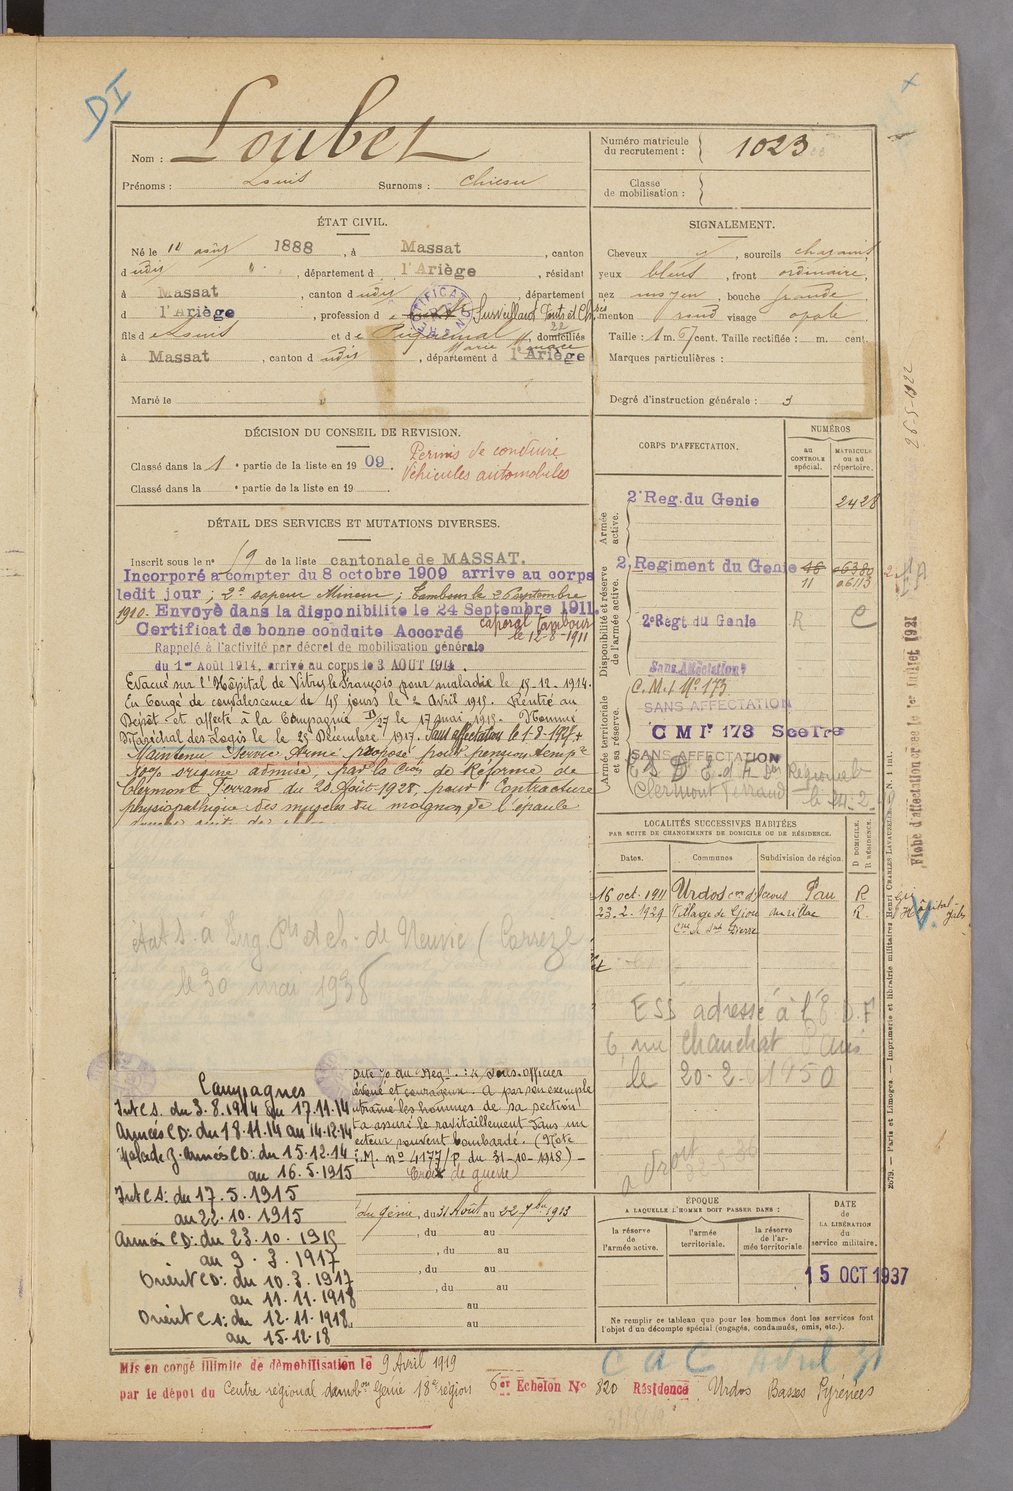 DI
Nom : Loubet
Prénoms : Louis Surnoms :
Numéro matricule du recrutement : 1023
Classe de mobilisation :
ÉTAT CIVIL.
Né le août 1888, à Massat, canton
d udit, département d l'Ariège, résidant
à Massat, canton d udit, département
d l'Ariège, profession d Surveillant
fils de Louis et de domiciliés
à Massat, canton d udit, département d l'Ariège
Marié le
SIGNALEMENT.
Cheveux, sourcils chatains
yeux bleus, front ordinaire,
nez moyen, bouche grande,
menton rond visage ovale.
Taille : 1 m. 67 cent. Taille rectifiée : m. cent.
Marques particulières :
Degré d'instruction générale : 3
DÉCISION DU CONSEIL DE REVISION.
Classé dans la 1e partie de la liste en 1909.
Classé dans la e partie de la liste en 19
Permis de conduire
Véhicules automobiles
DÉTAIL DES SERVICES ET MUTATIONS DIVERSES.
Inscrit sous le n° 19 de la liste cantonale de MASSAT.
Incorporé à compter du 8 octobre 1909 arrivé au corps
ledit jour ; 2e sapeur Mineur ; Tambour le 26 septembre
1910. Envoyé dans la disponibilité le 24 Septembre 1911.
Certificat de bonne conduite Accordé
caporal tambour
le 12-8-1911
Rappelé à l'activité par décret de mobilisation générale
du 1er Août 1914, arrivé au corps le 3 AOUT 1914.
Evacué sur l'Hôpital de Vitry le François pour maladie le 15-12-1914.
En Congé de convalescence de 45 jours le 2 Avril 1915. Rentré au
Dépôt et affecté à la Compagnie D/27 le 17 mai 1915. Nommé
Maréchal des Logis le 25 Décembre 1917. Sans affectation le 1-8-1925
Maintenu Service Armé proposé pour pension temp.re
10% origine admise, par la Cion de Réforme de
Clermont Ferrand du 20 Août 1928, pour Contracture
physiopathique des muscles du moignon de l'épaule
CORPS D'AFFECTATION.
NUMÉROS
au CONTROLE spécial.
MATRICULE ou au répertoire.
Armée active.
2e Reg. du Genie 2428
Disponibilité et réserve de l'armée active.
2e Regiment du Genie
11 06113
2e Regt du Genie R C
Armée territoriale et sa réserve.
Sans Affectation
C.M.I N° 173
SANS AFFECTATION
C M Ir 173 Sectre
SANS AFFECTATION
Régional
Clermont Ferrand
LOCALITÉS SUCCESSIVES HABITÉES
PAR SUITE DE CHANGEMENTS DE DOMICILE OU DE RÉSIDENCE.
Dates. Communes Subdivision de région. D DOMICILE. R RÉSIDENCE.
16 oct. 1911 Urdos Pau R
23.2.1929 Village de Giou Aurillac R.
ESS adressé à l'E.D.F
6, rue Chauchat Paris
le 20-2-1950
de Neuvic (Corrèze
le 30 mai 1938
Campagnes
Int CS. du 3.8.1914 au 17.11.14
Armées CD: du 18.11.14 au 14.12.14
Malade Z. Armées CD: du 15.12.14
au 16.5.1915
Int CS: du 17.5.1915
au 22.10.1915
Armée CD: du 23.10.1915
au 9.3.1917
Orient CD: du 10.3.1917
au 11.11.1918
Orient CS: du 12.11.1918
au 15.12.18
Cité à o du Reg.t : Sous-officier
dévoué et courageux. A par son exemple
entraîné les hommes de sa section
et a assuré le ravitaillement dans un
secteur souvent bombardé. (Note
i.M. n° 4177/P du 31-10-1918) -
Croix de guerre
du Génie, du 31 Août au 22 7bre 1913
, du au
, du au
, du au
, du au
au
au
ÉPOQUE
A LAQUELLE L'HOMME DOIT PASSER DANS :
la réserve de l'armée active.
l'armée territoriale.
la réserve de l'armée territoriale
DATE de LA LIBÉRATION du service militaire.
15 OCT 1937
Ne remplir ce tableau que pour les hommes dont les services font
l'objet d'un décompte spécial (engagés, condamnés, omis, etc.).
C a C Avril 31
Mis en congé illimité de démobilisation le 9 Avril 1919
par le dépôt du Centre régional démobon Génie 18e région 6er Echelon N° 820 Résidence Urdos Basses Pyrénées
26-5-1922
2079. — Paris et Limoges. — Imprimerie et librairie militaires Henri CHARLES-LAVAUZELLE.